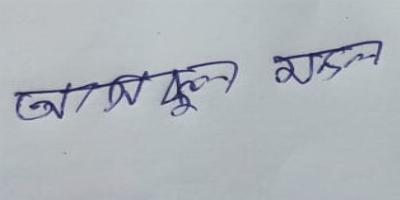 আসকুল মন্ডল